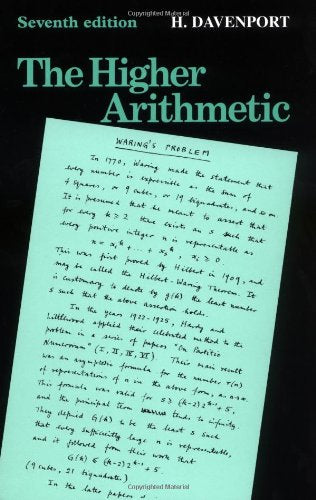 Seventh edition H. DAVENPORT
The Higher
Arithmetic
WARING'S PROBLEM
In 1770, Waring made the statement that
every number is expressible as the sum of
4 squares, or 9 cubes, or 19 biquadrates, and so on.
It is presumed that he meant to assert that
for every k ≥ 2 there exists an s such that
every positive integer n is representable as
n = x₁ᵏ + ... + xₛᵏ, xᵢ ≥ 0.
This was first proved by Hilbert in 1909, and
may be called the Hilbert-Waring Theorem. It
is customary to denote by g(k) the least number
s such that the above assertion holds.
In the years 1922-1925, Hardy and
Littlewood applied their celebrated method to the
problem in a series of papers "On Partitio
Numerorum" (I, II, IV, VI). Their main result
was an asymptotic formula for the number r(n)
of representations of n in the above form, as n→∞.
This formula was valid for s ≥ (k-2)2ᵏ⁻¹ + 5,
and the principal term tends to infinity.
They defined G(k) to be the least s such
that every sufficiently large n is representable,
and it followed from their work that
G(k) ≤ (k-2)2ᵏ⁻¹ + 5.
(9 cubes, 21 biquadrates)
In the later papers